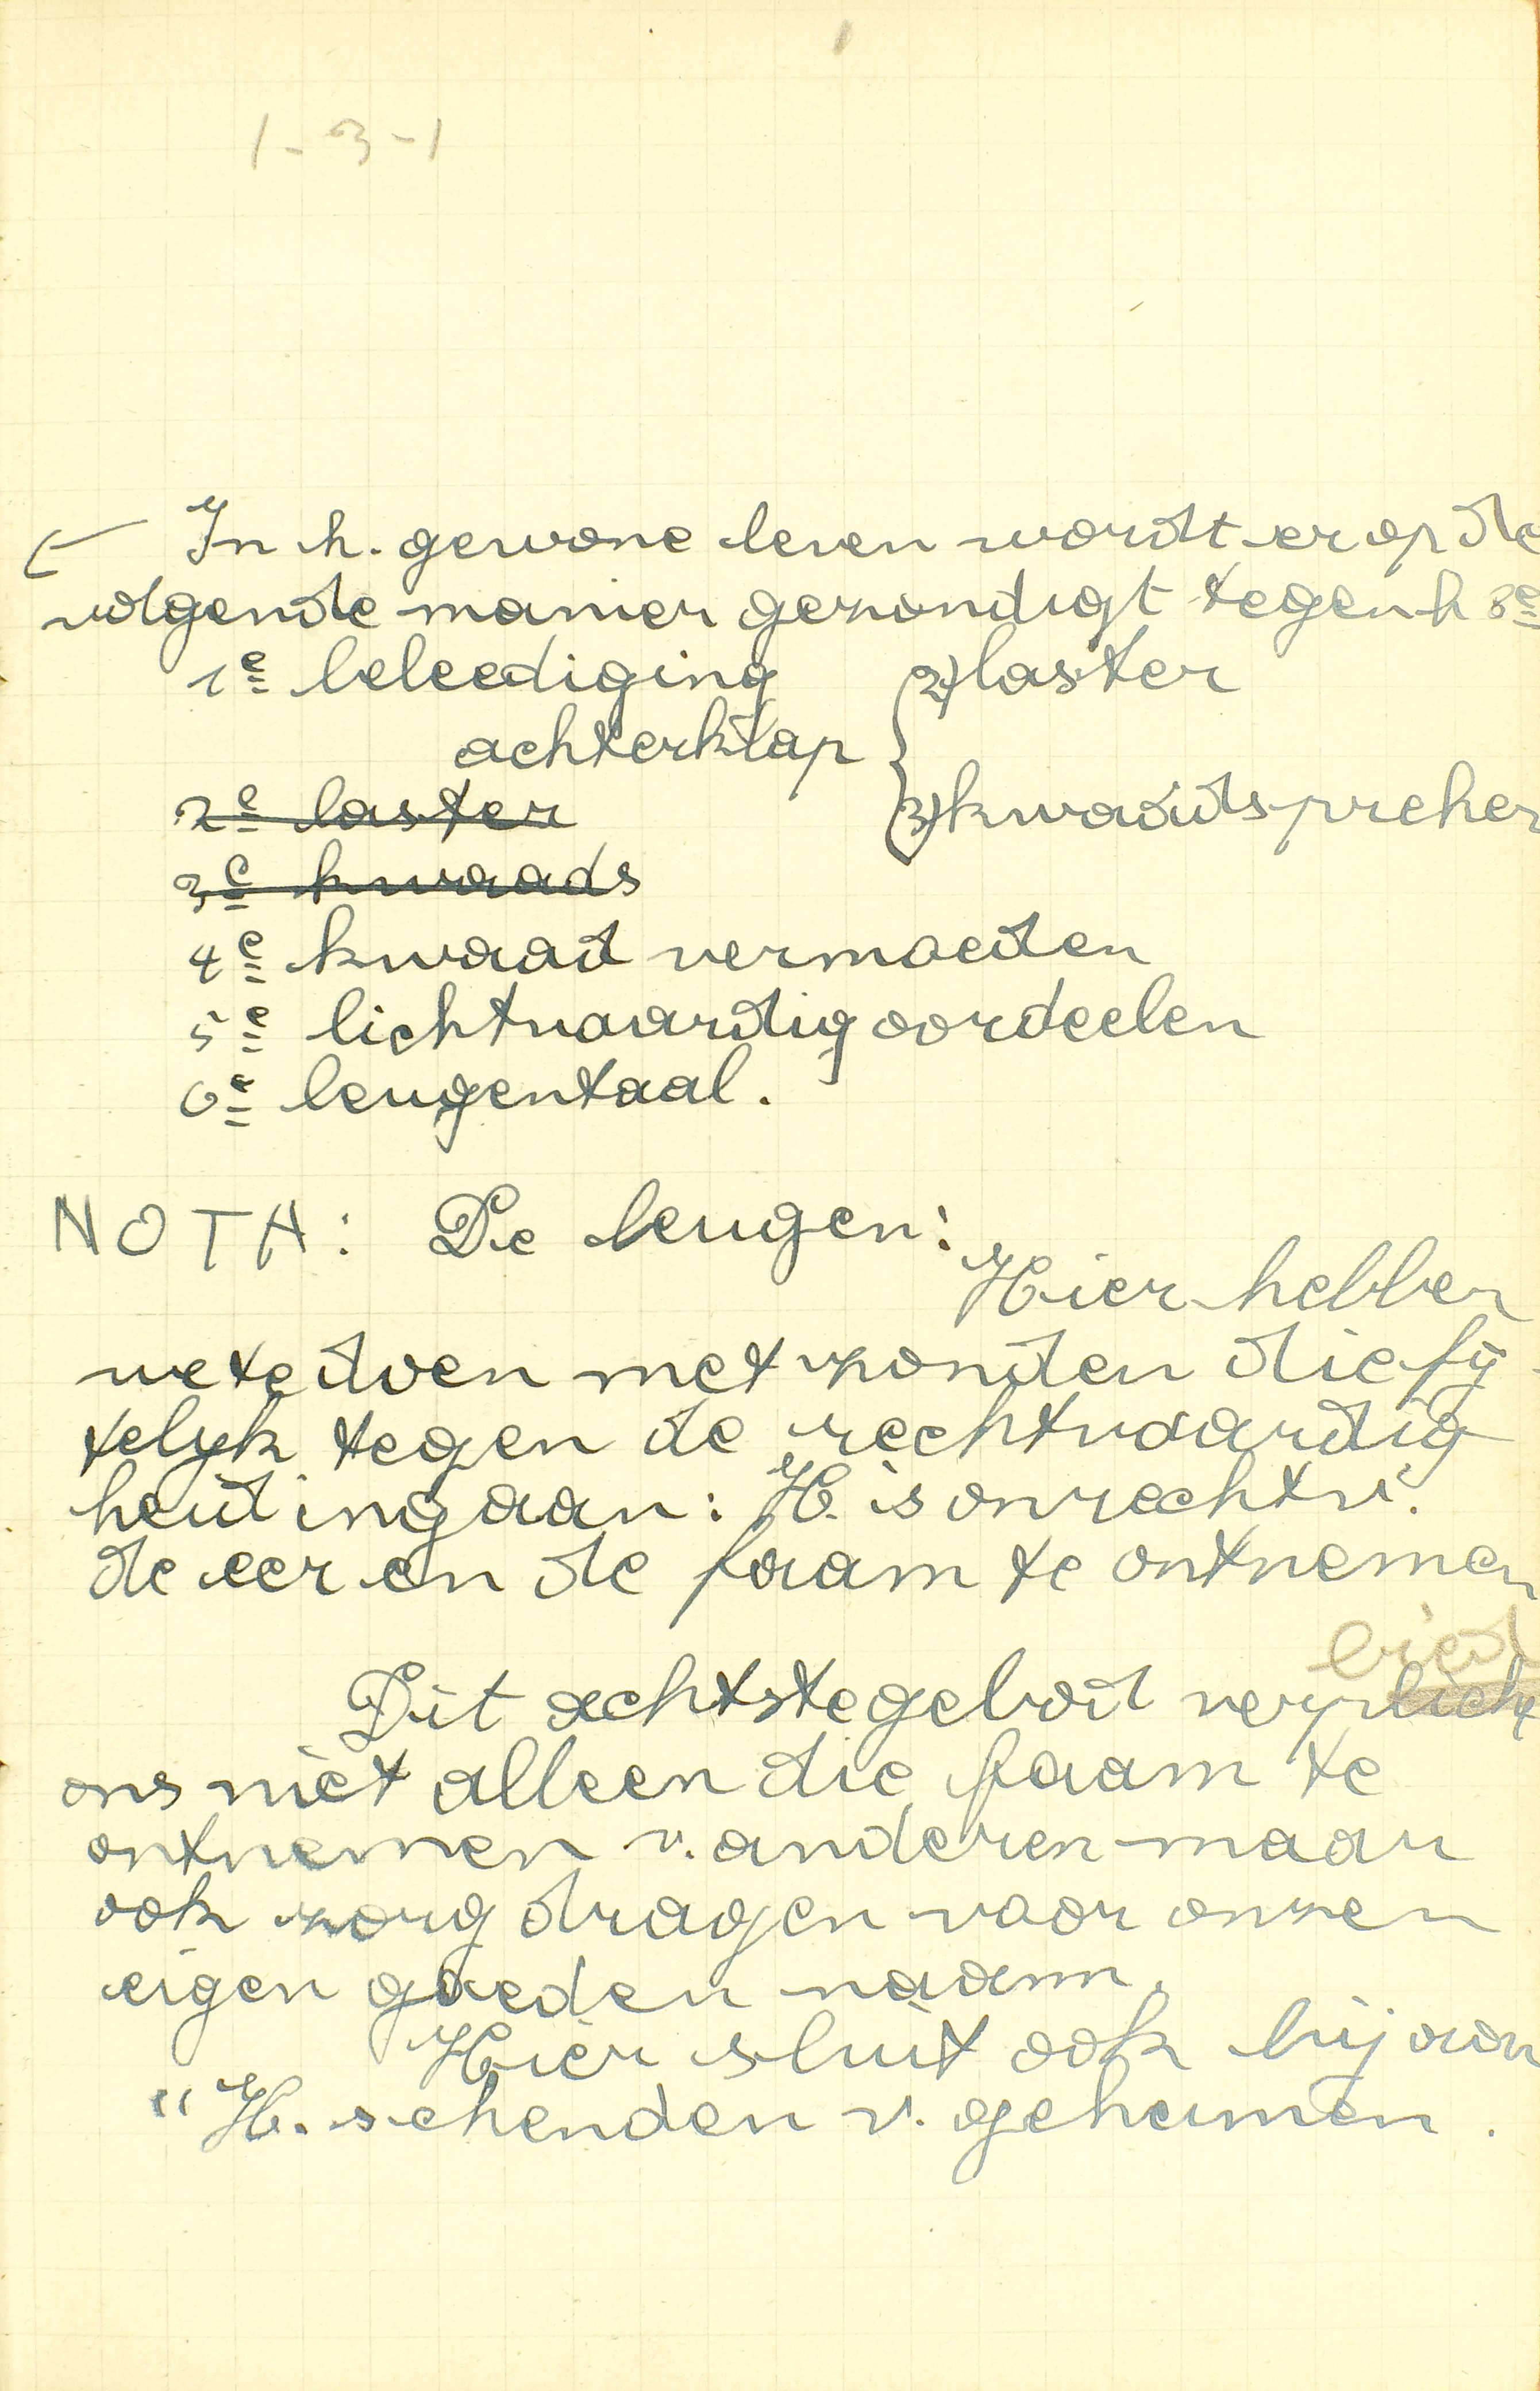 1-3-1
In h. gewone leven wordt er op de
volgende manier gezondigt tegen h 8e
1e beleediging
2) laster
achterklap
3) kwaadspreken
2e laster
3e kwaads
4e kwaad vermoeden
5e lichtvaardig oordeelen
6e leugentaal.
NOTA: De leugen:
Hier hebben
we te doen met zonden die fij-
telyk tegen de rechtvaardig
heid ingaan: H. is onrechtv.
de eer en de faam te ontnemen
bied
Dit achtste gebod verplicht
ons niet alleen die faam te
ontnemen v. anderen maar
ook zorg dragen voor onzen
eigen goeden naam.
Hier sluit ook bij aan
"H. schenden v. geheimen.